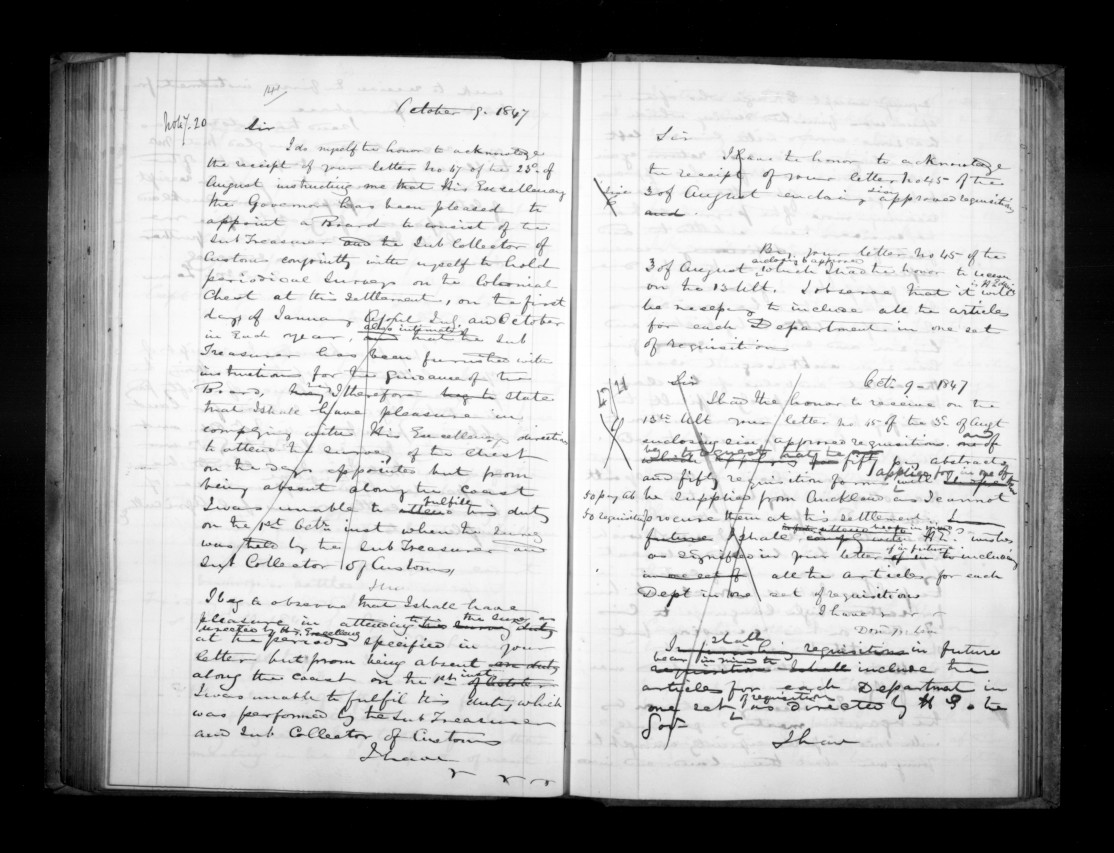 October 9. 1847
No 47. 20
Sir
I do myself the honor to acknowledge
the receipt of your letter No 47 of the 23d. of
August instructing me that His Excellency
the Governor has been pleased to
appoint a Board to consist of the
Sub Treasurer and the Sub Collector of
Customs conjointly with myself to hold
periodical Surveys on the Colonial
Chest at this Settlement, on the first
days of January April July and October
also intimate
in each year, and that the Sub
Treasurer has been furnished with
instructions for the guidance of the
Board, I therefore beg to state
that I shall have pleasure in
complying with His Excellency direction
to attend the survey of the Chest
on the days appointed but from
being absent along the Coast
fulfil
I was unable to attend this duty
on the 1st Octr inst when the Survey
was held by the Sub Treasurer and
Sub Collector of Customs,
I beg to observe that I shall have
pleasure in attending to this the Survey duty
directed by H. Excellency
at the periods specified in your
letter but from being absent on duty
along the Coast on the 1st inst of October
I was unable to fulfil this duty, which
was performed by the Sub Treasurer
and Sub Collector of Customs
I have
Sir
I have the honor to acknowledge
the receipt of your letter No 45 of the
3d of August enclosing approved requisition
and.
your letter No 45 of the
enclosing approved
3d of August, which I had the honor to receive
on the 13 Ult. I observe that it will
be necessary to include all the articles
for each Department in one set
of requisitions
Sir Oct. 9 - 1847
45/21
I had the honor to receive on the
13th Ult your letter no 45 of the 3d of Augt
enclosing approved requisitions, and
beg to request that the fifty pay abstracts
and fifty requisition forms applied for in one of
50 pay ab be supplied from Auckland as I cannot
50 requisition procure them at this settlement. I
future I shall comply with H E's wishes
as signified in your letter in future including
in one set of all the articles for each
Dept in one set of requisitions
I have
shall
I requisitions in future
bear in mind to
requisition I shall include the
articles for each Department in
of requisition
one set as directed by H E. the
Govr
I have